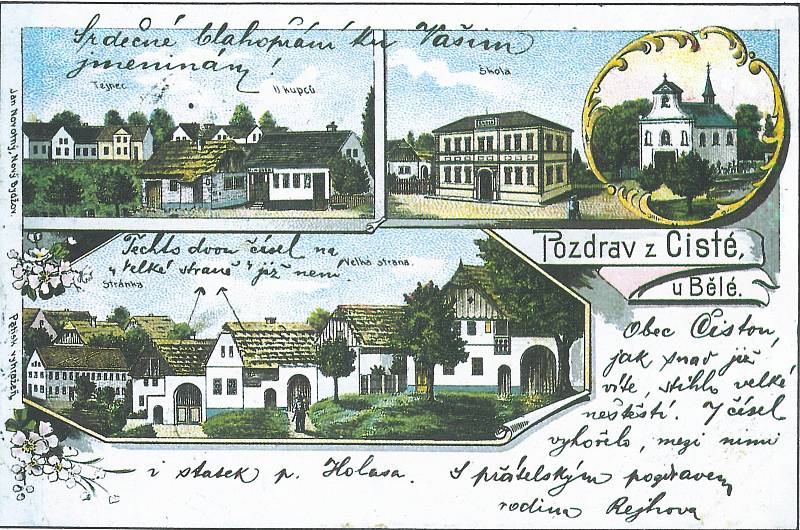 Srdečné blahopřání ku Vašim
jmeninám!
Tejnec
U kupců
Škola
Jan Novotný, Nový Bydžov.
Pozdrav z Čisté,
u Bělé.
Těchto dvou čísel na
"velké straně" již není.
Stránka
Velká strana.
Obec Čistou,
jak snad již
víte, stihlo velké
neštěstí. 7 čísel
vyhořelo, mezi nimi
i statek p. Holasa. S přátelským pozdravem
rodina Rejhova